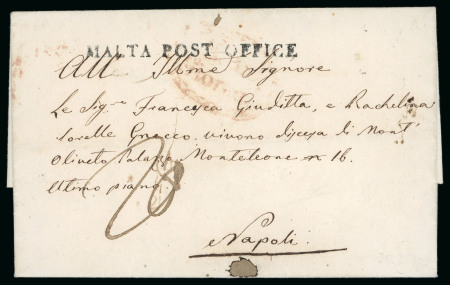 MALTA POST OFFICE
All' Illme Signore
Le Sigre Francesca Giuditta, e Rachelina
Sorelle Gnecco, vivono discesa di Mont'
Oliveto Palazzo Monteleone n 16.
Ultimo piano.
Napoli.